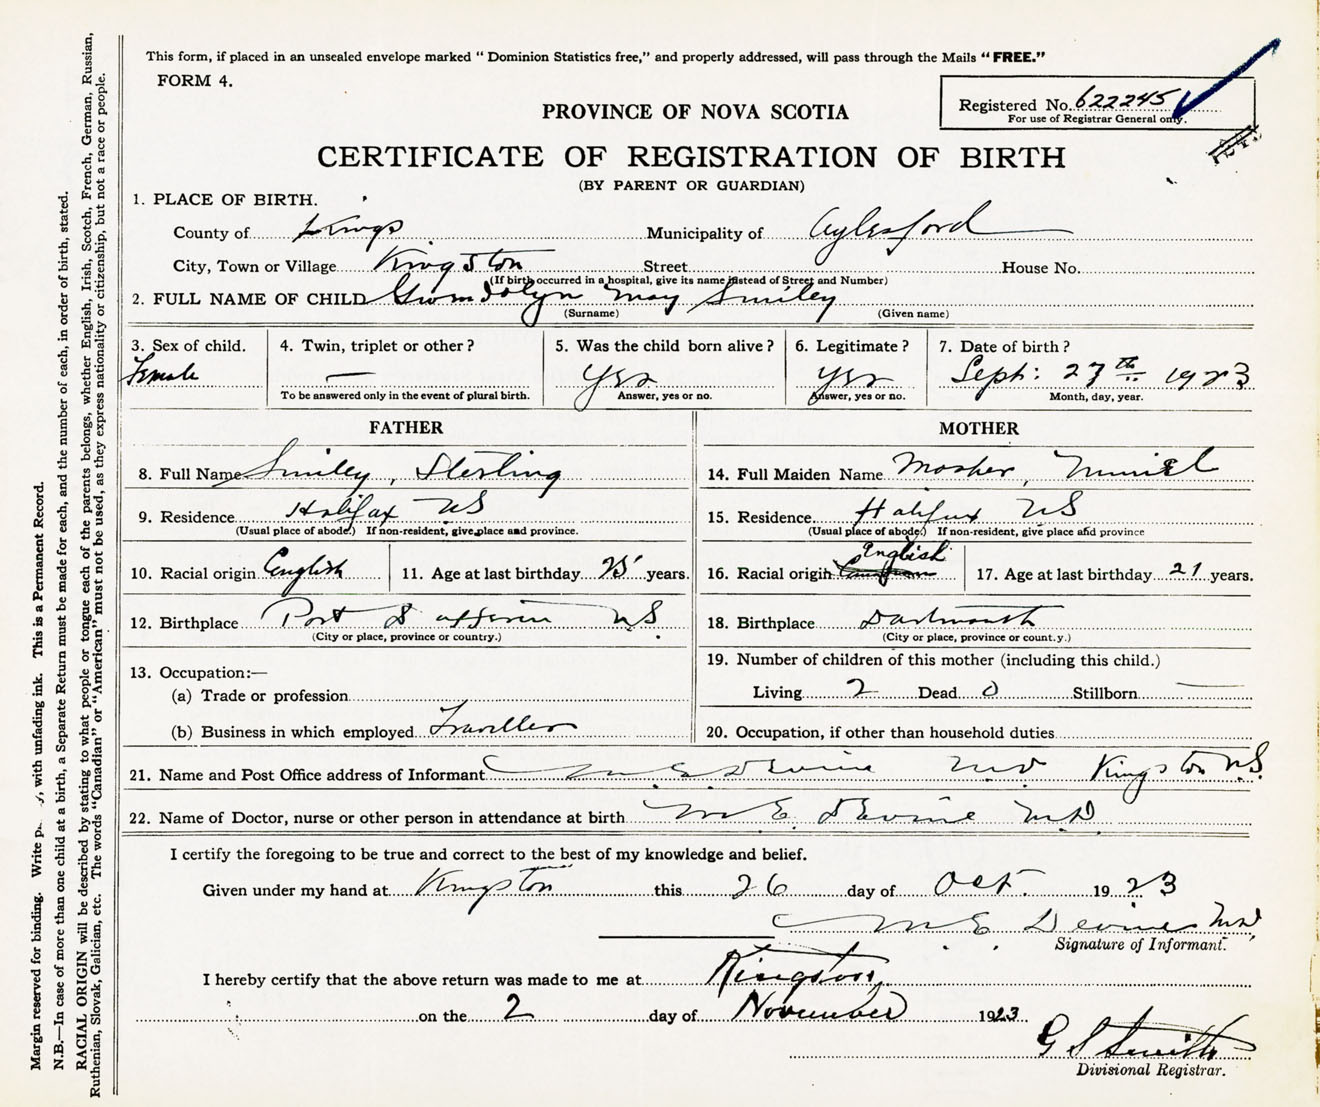 This form, if placed in an unsealed envelope marked “ Dominion Statistics free,” and properly addressed, will pass through the Mails “ FREE.”
FORM 4.
Registered No. 622245
For use of Registrar General only.
PROVINCE OF NOVA SCOTIA
CERTIFICATE OF REGISTRATION OF BIRTH
(BY PARENT OR GUARDIAN)
1. PLACE OF BIRTH.
County of Kings Municipality of Aylesford
City, Town or Village Kingston Street House No.
(If birth occurred in a hospital, give its name instead of Street and Number)
2. FULL NAME OF CHILD Gwendolyn May Smiley
(Surname) (Given name)
3. Sex of child. 4. Twin, triplet or other ? 5. Was the child born alive ? 6. Legitimate ? 7. Date of birth ?
Female — Yes Yes Sept: 27th 1923
To be answered only in the event of plural birth. Answer, yes or no. Answer, yes or no. Month, day, year.
FATHER MOTHER
8. Full Name Smiley, Sterling 14. Full Maiden Name Mosher, Muriel
9. Residence Halifax NS 15. Residence Halifax NS
(Usual place of abode.) If non-resident, give place and province. (Usual place of abode.) If non-resident, give place and province
10. Racial origin English 11. Age at last birthday 25 years. 16. Racial origin English 17. Age at last birthday 21 years.
12. Birthplace Port Dufferin NS 18. Birthplace Dartmouth
(City or place, province or country.) (City or place, province or count.y.)
13. Occupation:— 19. Number of children of this mother (including this child.)
(a) Trade or profession Living 2 Dead 0 Stillborn —
(b) Business in which employed Traveller 20. Occupation, if other than household duties
21. Name and Post Office address of Informant M E Devine MD Kingston N.S.
22. Name of Doctor, nurse or other person in attendance at birth M E Devine MD
I certify the foregoing to be true and correct to the best of my knowledge and belief.
Given under my hand at Kingston this 26 day of Oct. 1923
M E Devine MD
Signature of Informant.
I hereby certify that the above return was made to me at Kingston,
on the 2 day of November 1923
G S Smith
Divisional Registrar.
Margin reserved for binding. Write , with unfading ink. This is a Permanent Record.
N.B.—In case of more than one child at a birth, a Separate Return must be made for each, and the number of each, in order of birth, stated.
RACIAL ORIGIN will be described by stating to what people or tongue each of the parents belongs, whether English, Irish, Scotch, French, German, Russian,
Ruthenian, Slovak, Galician, etc. The words “Canadian” or “American” must not be used, as they express nationality or citizenship, but not a race or people.